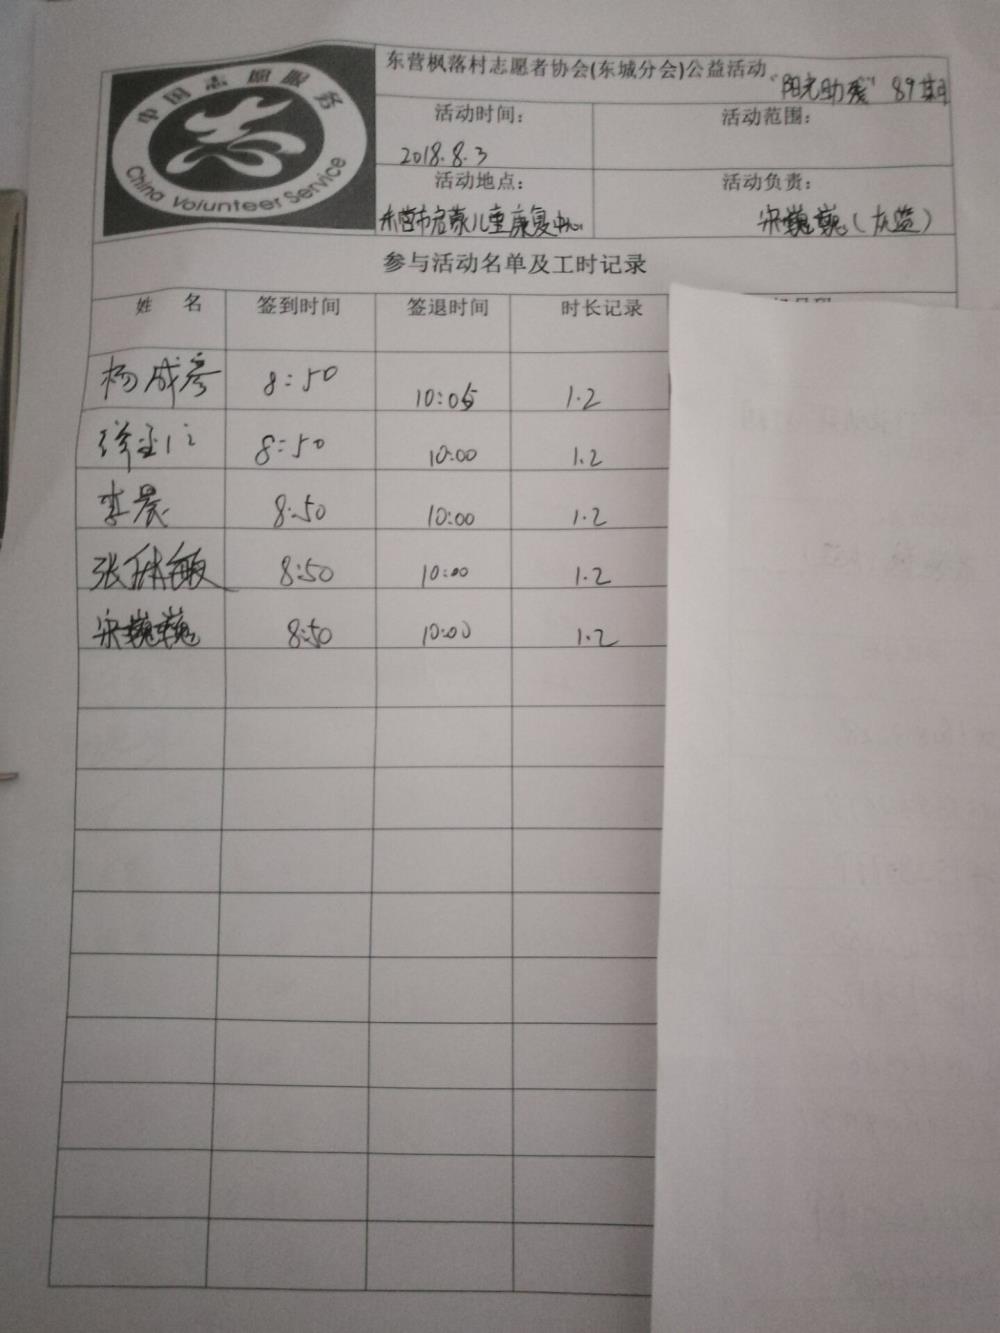 中国志愿服务
China Volunteer Service
东营枫落村志愿者协会(东城分会)公益活动
"阳光助残" 89期
活动时间:
活动范围:
2018.8.3
活动地点:
活动负责:
东营市启蒙儿童康复中心
宋巍巍(灰蓝)
参与活动名单及工时记录
姓 名 签到时间 签退时间 时长记录
杨成彦 8:50 10:05 1.2
8:50 10:00 1.2
李晨 8:50 10:00 1.2
张 敏 8:50 10:00 1.2
宋巍巍 8:50 10:00 1.2